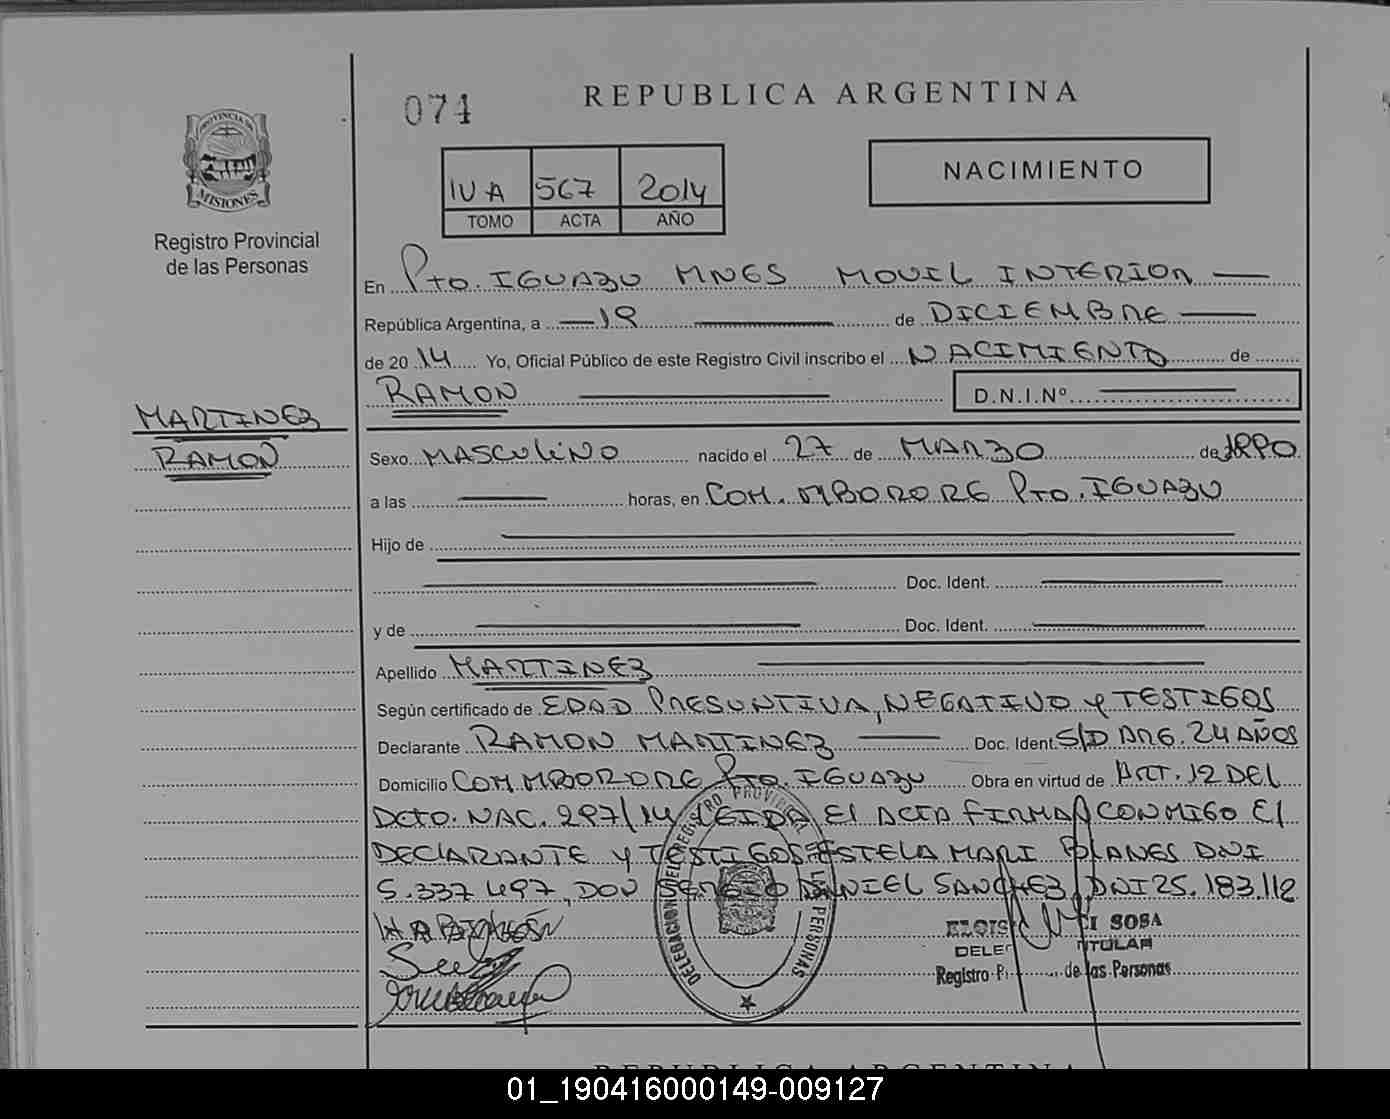 074
REPUBLICA ARGENTINA
IV A 567 2014
TOMO ACTA AÑO
NACIMIENTO
PROVINCIA DE
MISIONES
Registro Provincial
de las Personas
En Pto. IGUAZU MNES MOVIL INTERIOR
República Argentina, a 19 de DICIEMBRE
de 2014 Yo, Oficial Público de este Registro Civil inscribo el NACIMIENTO de
RAMON D.N.I.Nº
MARTINEZ
RAMON
Sexo MASCULINO nacido el 27 de MARZO de 1990
a las horas, en COM. MBORORE Pto. IGUAZU
Hijo de
Doc. Ident.
y de Doc. Ident.
Apellido MARTINEZ
Según certificado de EDAD PRESUNTIVA, NEGATIVO y TESTIGOS
Declarante RAMON MARTINEZ Doc. Ident. S/D ARG. 24 AÑOS
Domicilio COM MBORORE Pto. IGUAZU Obra en virtud de ART. 12 DEL
DCTO. NAC. 297/14 LEIDA El ACTA FIRMA CONMIGO El
DECLARANTE y TESTIGOS ESTELA MARI DNI
5.337.497, DON DANIEL SANCHEZ, DNI 25.183.112
DELEGACION DEL REGISTRO PROVINCIAL DE LAS PERSONAS
SOSA
TITULAR
Registro de las Personas
REPUBLICA ARGENTINA
01_190416000149-009127